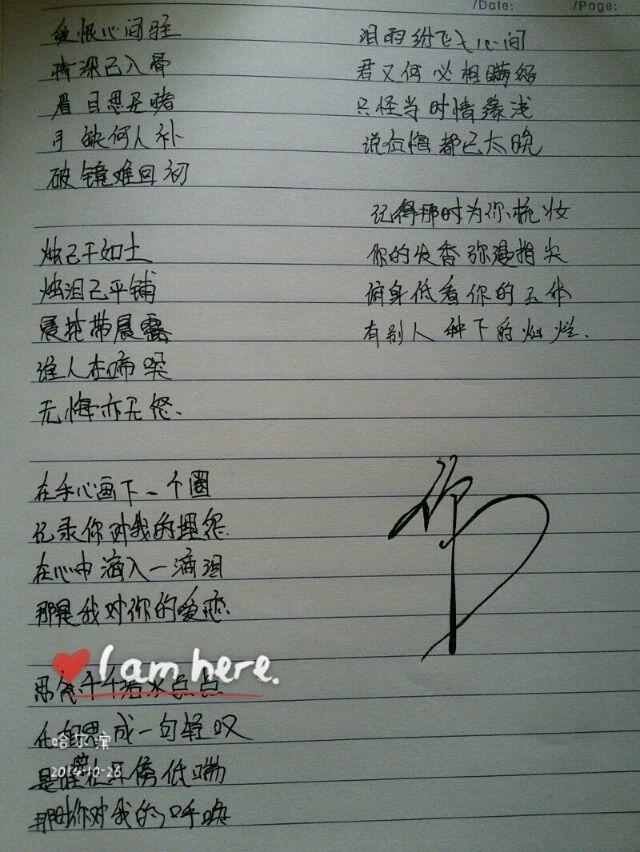 /Date: /Page:
爱恨心间驻
情深已入骨
眉目思是
手缺何人补
破镜难回初
烛已干如土
烛泪已平铺
晨花带晨露
谁人在啼哭
无悔亦无怒.
在手心画下一个圈
记录你对我的埋怨
在心中滴入一滴泪
那是我对你的爱恋
I am here.
化相思成一句轻叹
哈尔滨
2014-10-26
是谁在耳傍低喘
那时你对我的呼唤
泪雨纷飞心间
君又何必相瞒
只怪当时情缘浅
说后悔都已太晚
记得那时为你梳妆
你的发香弥漫指尖
俯身低看你的
有别人种下的灿烂.
你